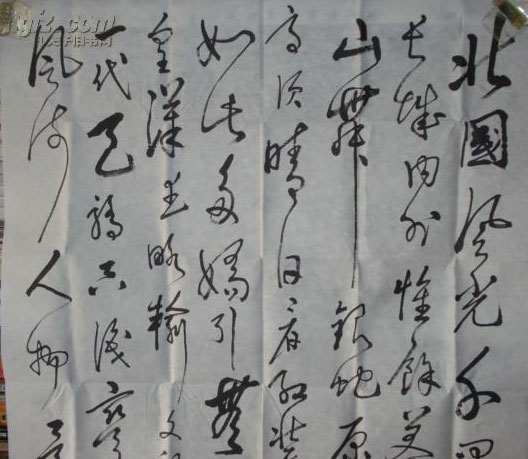 北國風光千里
長城内外惟餘莽
山舞銀蛇原
高須晴日看紅裝
如此多嬌引無
皇漢武略輸文
一代天驕只識彎
風流人物